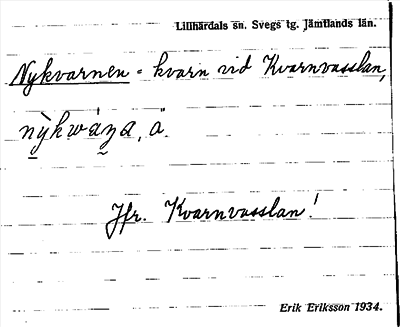 Lillhärdals sn. Svegs tg. Jämtlands län.
Nykvarnen = kvarn vid Kvarnvasslan,
Jfr. Kvarnvasslan!
Erik Eriksson 1934.